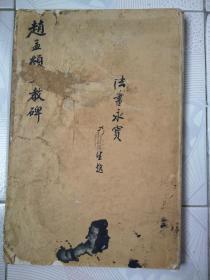 法書永寶
生題
趙孟頫教碑